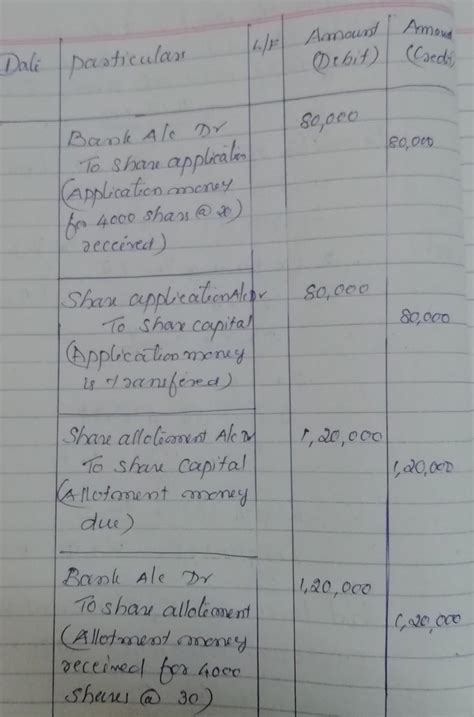 Date Particulars L/F Amount (Debit) Amount (Credit)
Bank A/c Dr 80,000
To share application 80,000
(Application money
for 4000 shares @ 20)
received)
Share application A/c Dr 80,000
To share capital 80,000
(Application money
is transfered)
Share allotment A/c Dr 1,20,000
To share capital 1,20,000
(Allotment money
due)
Bank A/c Dr 1,20,000
To share allotment 1,20,000
(Allotment money
received for 4000
shares @ 30)